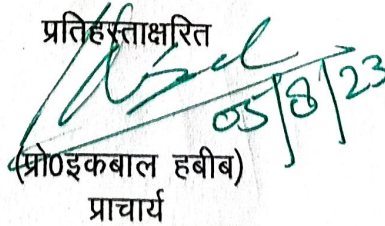 प्रतिहस्ताक्षरित
05/8/23
(प्रो0इकबाल हबीब)
प्राचार्य